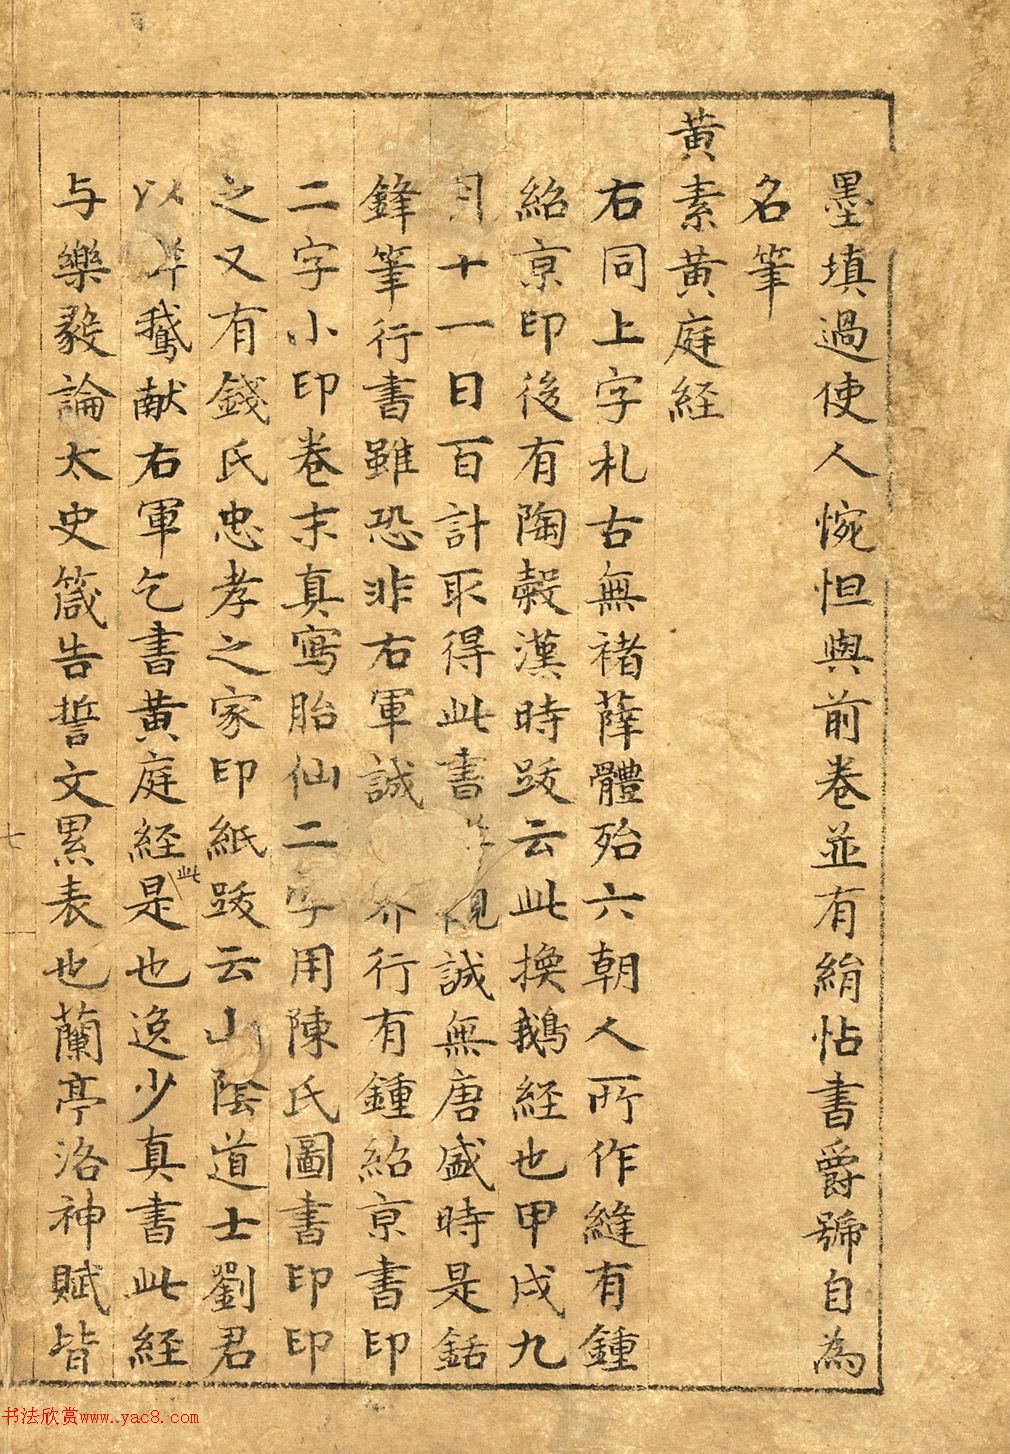 墨填過使人惋怛與前卷並有絹帖書爵號自為
名筆
黃素黃庭経
右同上字札古無褚薛體殆六朝人所作縫有鍾
紹京印後有陶穀漢時跋云此換鵝経也甲戌九
月十一日百計取得此書 見誠無唐盛時是銛
鋒筆行書雖恐非右軍誠 界行有鍾紹京書印
二字小印卷末真寫胎仙二字用陳氏圖書印印
之又有錢氏忠孝之家印紙跋云山陰道士劉君
以群鵝献右軍乞書黃庭経此是也逸少真書此経
与樂毅論太史箴告誓文累表也蘭亭洛神賦皆
七
书法欣赏www.yac8.com